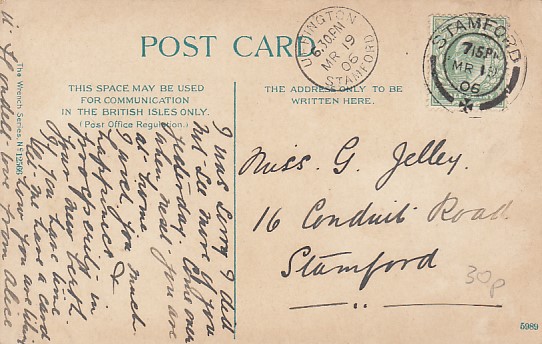 POST CARD
THIS SPACE MAY BE USED
FOR COMMUNICATION
IN THE BRITISH ISLES ONLY.
(Post Office Regulation.)
THE ADDRESS ONLY TO BE
WRITTEN HERE.
UFFINGTON
6.30PM
MR 19
06
STAMFORD
STAMFORD
7 15PM
MR 19
06
The Wrench Series, No 12506
I was sorry I did
not see more of you
yesterday. Come over
when next you are
at home
I wish you much
happiness &
prosperity in
your new berth
If you have time
let me have a card
how you are
love from Alice
Miss. G. Jelley.
16 Conduit Road
Stamford
30p
5989